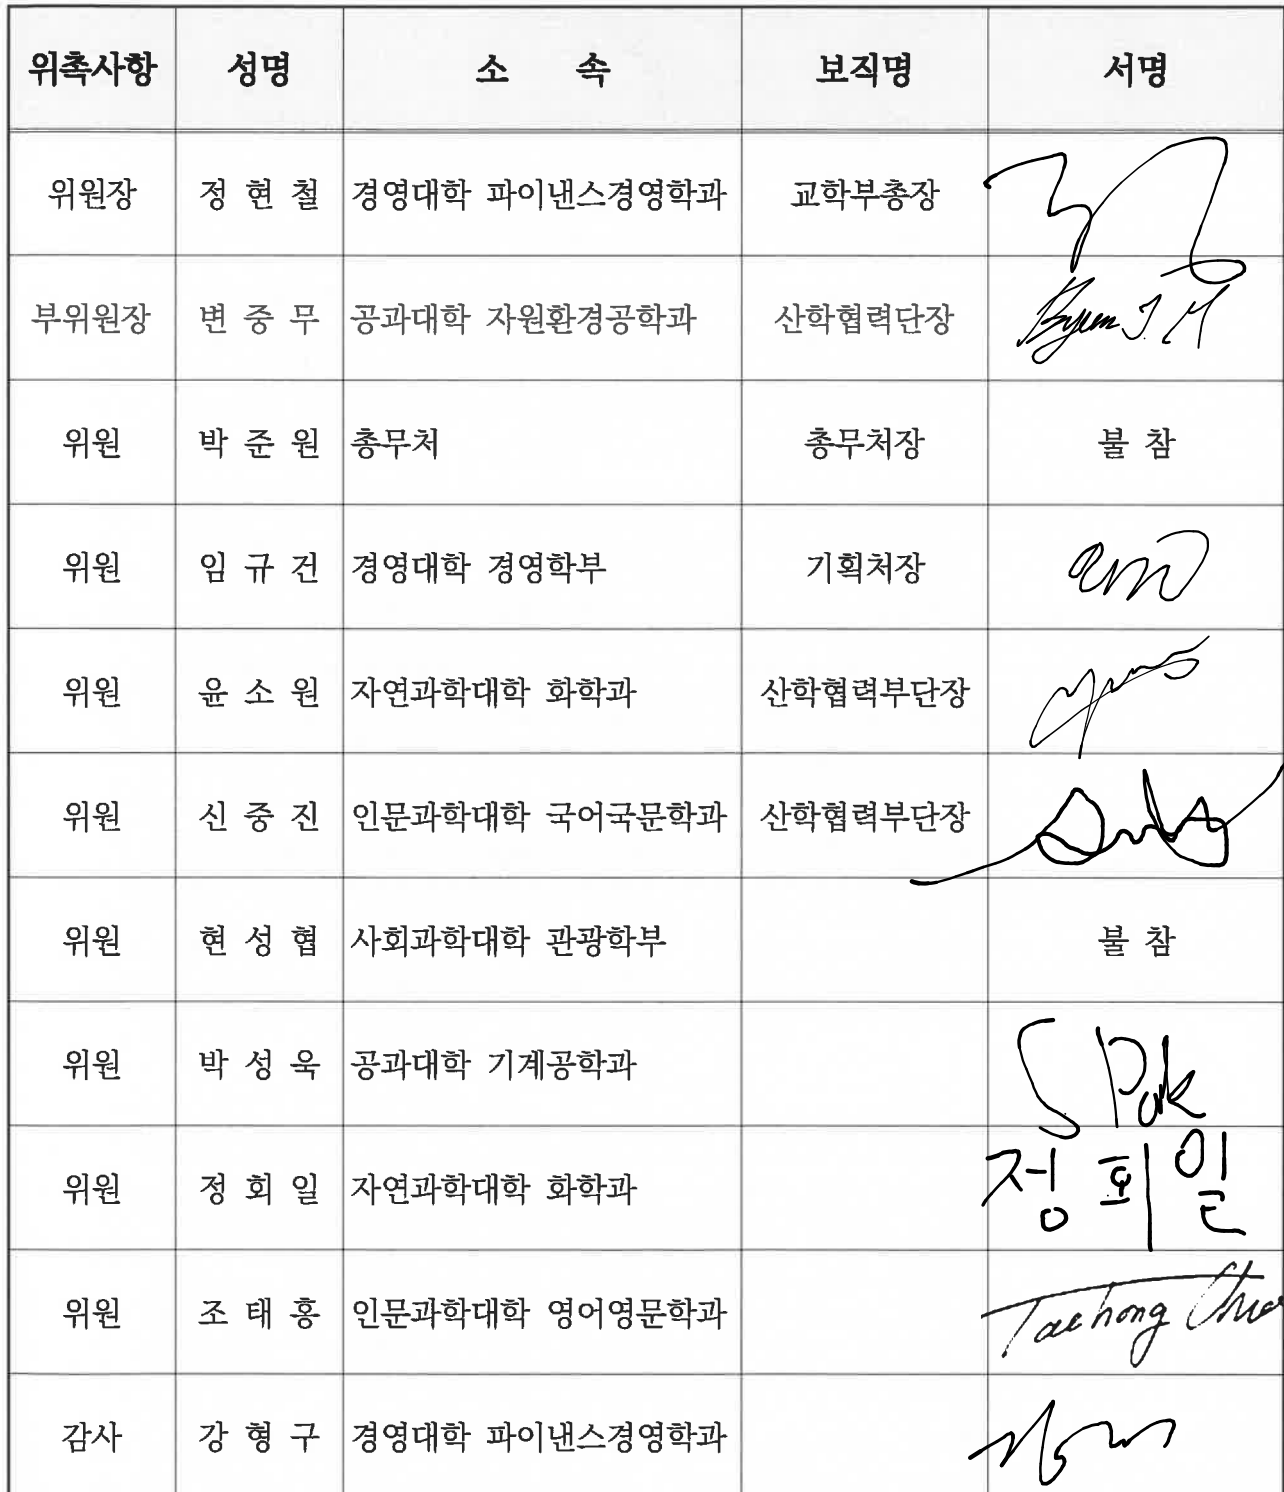 위촉사항 성명 소 속 보직명 서명
위원장 정 현 철 경영대학 파이낸스경영학과 교학부총장
부위원장 변 중 무 공과대학 자원환경공학과 산학협력단장 Byun J. M
위원 박 준 원 총무처 총무처장 불 참
위원 임 규 건 경영대학 경영학부 기획처장
위원 윤 소 원 자연과학대학 화학과 산학협력부단장
위원 신 중 진 인문과학대학 국어국문학과 산학협력부단장
위원 현 성 협 사회과학대학 관광학부 불 참
위원 박 성 욱 공과대학 기계공학과 S Park
위원 정 회 일 자연과학대학 화학과 정회일
위원 조 태 홍 인문과학대학 영어영문학과 Taehong
감사 강 형 구 경영대학 파이낸스경영학과